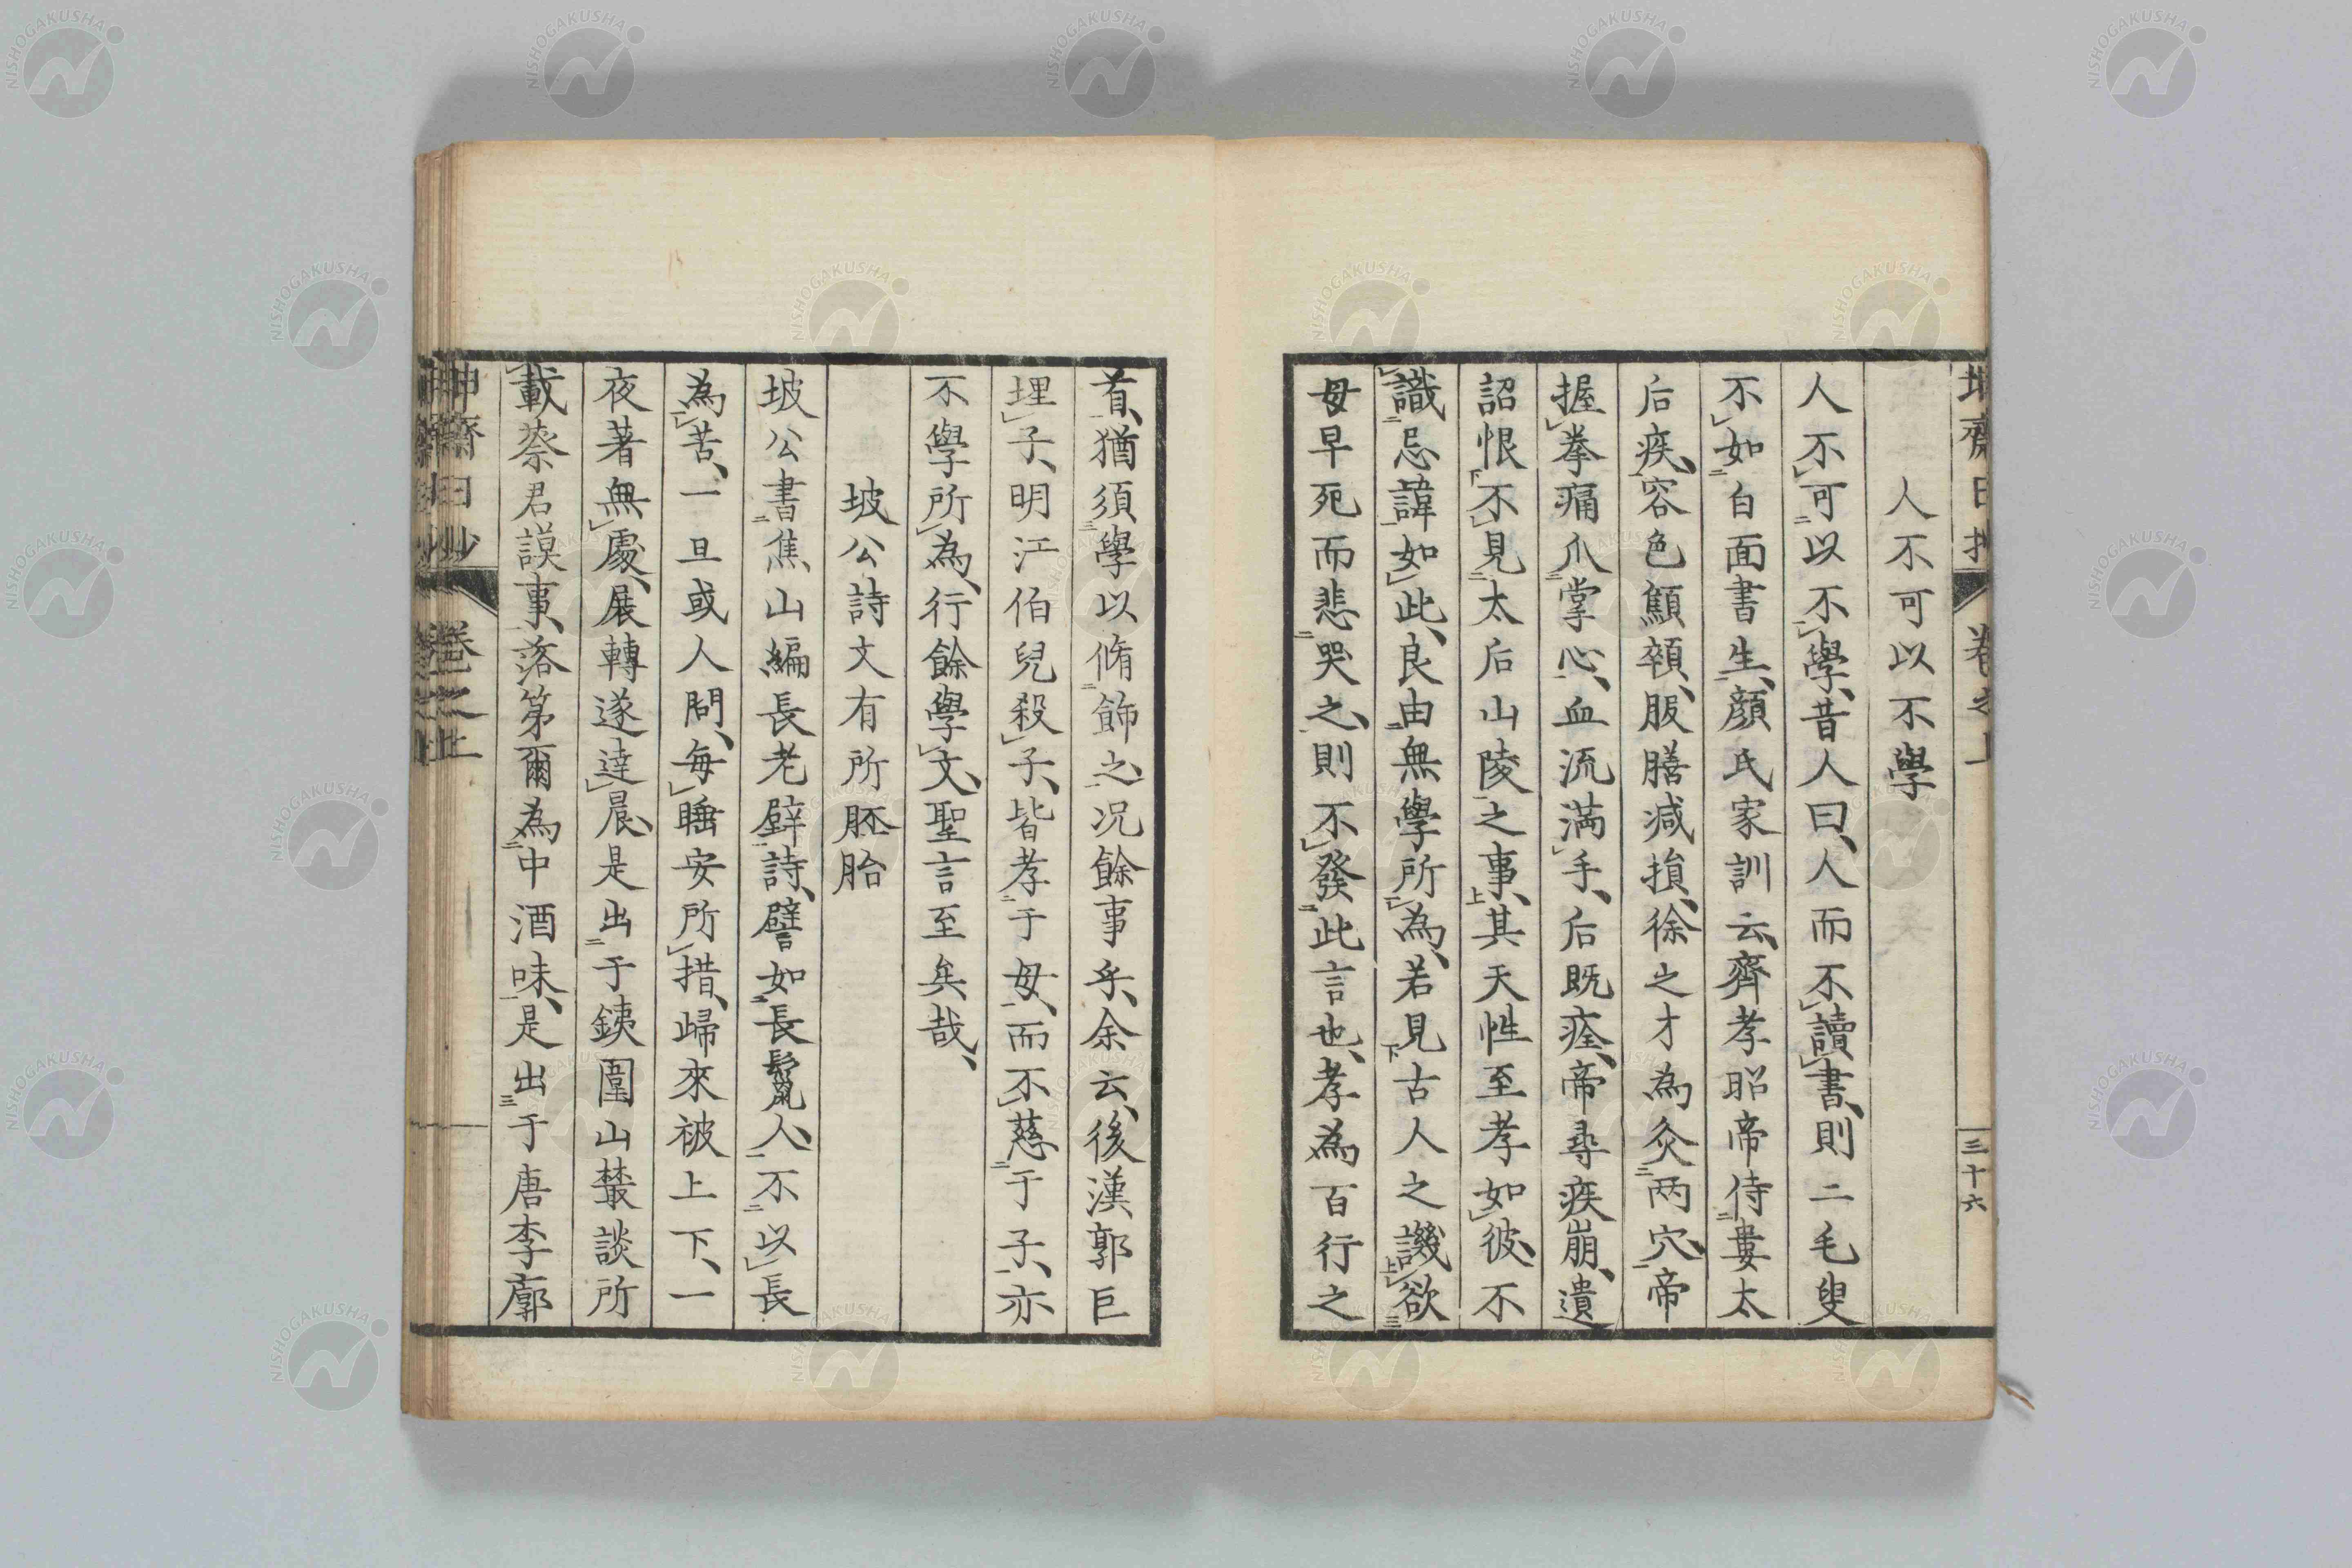 人不可以不學
人不可以不學、昔人曰、人而不讀書、則二毛叟
不如白面書生、顔氏家訓云、齊孝昭帝侍婁太
后疾、容色顦顇、服膳減損、徐之才為灸兩穴、帝
握拳痛爪掌心、血流滿手、后既痊、帝尋疾崩、遺
詔恨不見太后山陵之事、其天性至孝如彼、不
識忌諱如此、良由無學所為、若見古人之譏欲
母早死而悲哭之、則不發此言也、孝為百行之
首、猶須學以脩飾之、况餘事乎、余云、後漢郭巨
埋子、明江伯兒殺子、皆孝于母、而不慈于子、亦
不學所為、行餘學文、聖言至矣哉、
坡公詩文有所胚胎
坡公書焦山編長老壁詩、譬如長鬣人、不以長
為苦、一旦或人問、每睡安所措、歸來被上下、一
夜著無處、展轉遂達晨、是出于鐵圍山叢談所
載蔡君謨事、落第爾為中酒味、是出于唐李廓
三十六